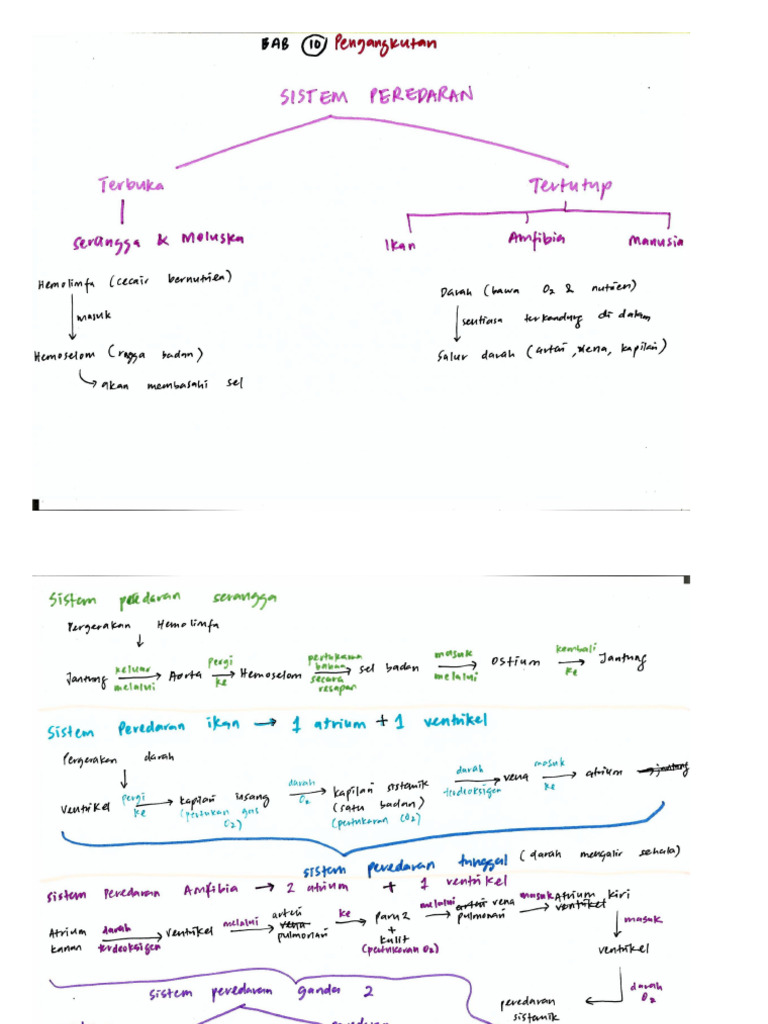 BAB 10 Pengangkutan
SISTEM PEREDARAN
Terbuka
Tertutup
Serangga & Moluska
Ikan
Amfibia
Manusia
Hemolimfa (cecair bernutrien)
masuk
Hemoselom (rongga badan)
akan membasahi sel
Darah (bawa O2 & nutrien)
sentiasa terkandung di dalam
Salur darah (arteri, vena, kapilari)
Sistem peredaran serangga
Pergerakan Hemolimfa
Jantung keluar melalui Aorta Pergi ke Hemoselom pertukaran bahan secara resapan sel badan masuk melalui Ostium kembali ke Jantung
Sistem Peredaran ikan → 1 atrium + 1 ventrikel
Pergerakan darah
ventrikel pergi ke kapilari insang (pertukaran gas O2) darah O2 kapilari sistemik (satu badan) (pertukaran CO2) darah terdeoksigen vena masuk ke atrium jantung
sistem peredaran tunggal (darah mengalir sehala)
Sistem Peredaran Amfibia → 2 atrium + 1 ventrikel
Atrium kanan darah terdeoksigen ventrikel melalui arteri vena pulmonari ke Paru2 + kulit (pertukaran O2) melalui arteri vena pulmonari masuk Atrium kiri ventrikel
masuk
ventrikel
darah O2
peredaran sistemik
sistem peredaran ganda 2